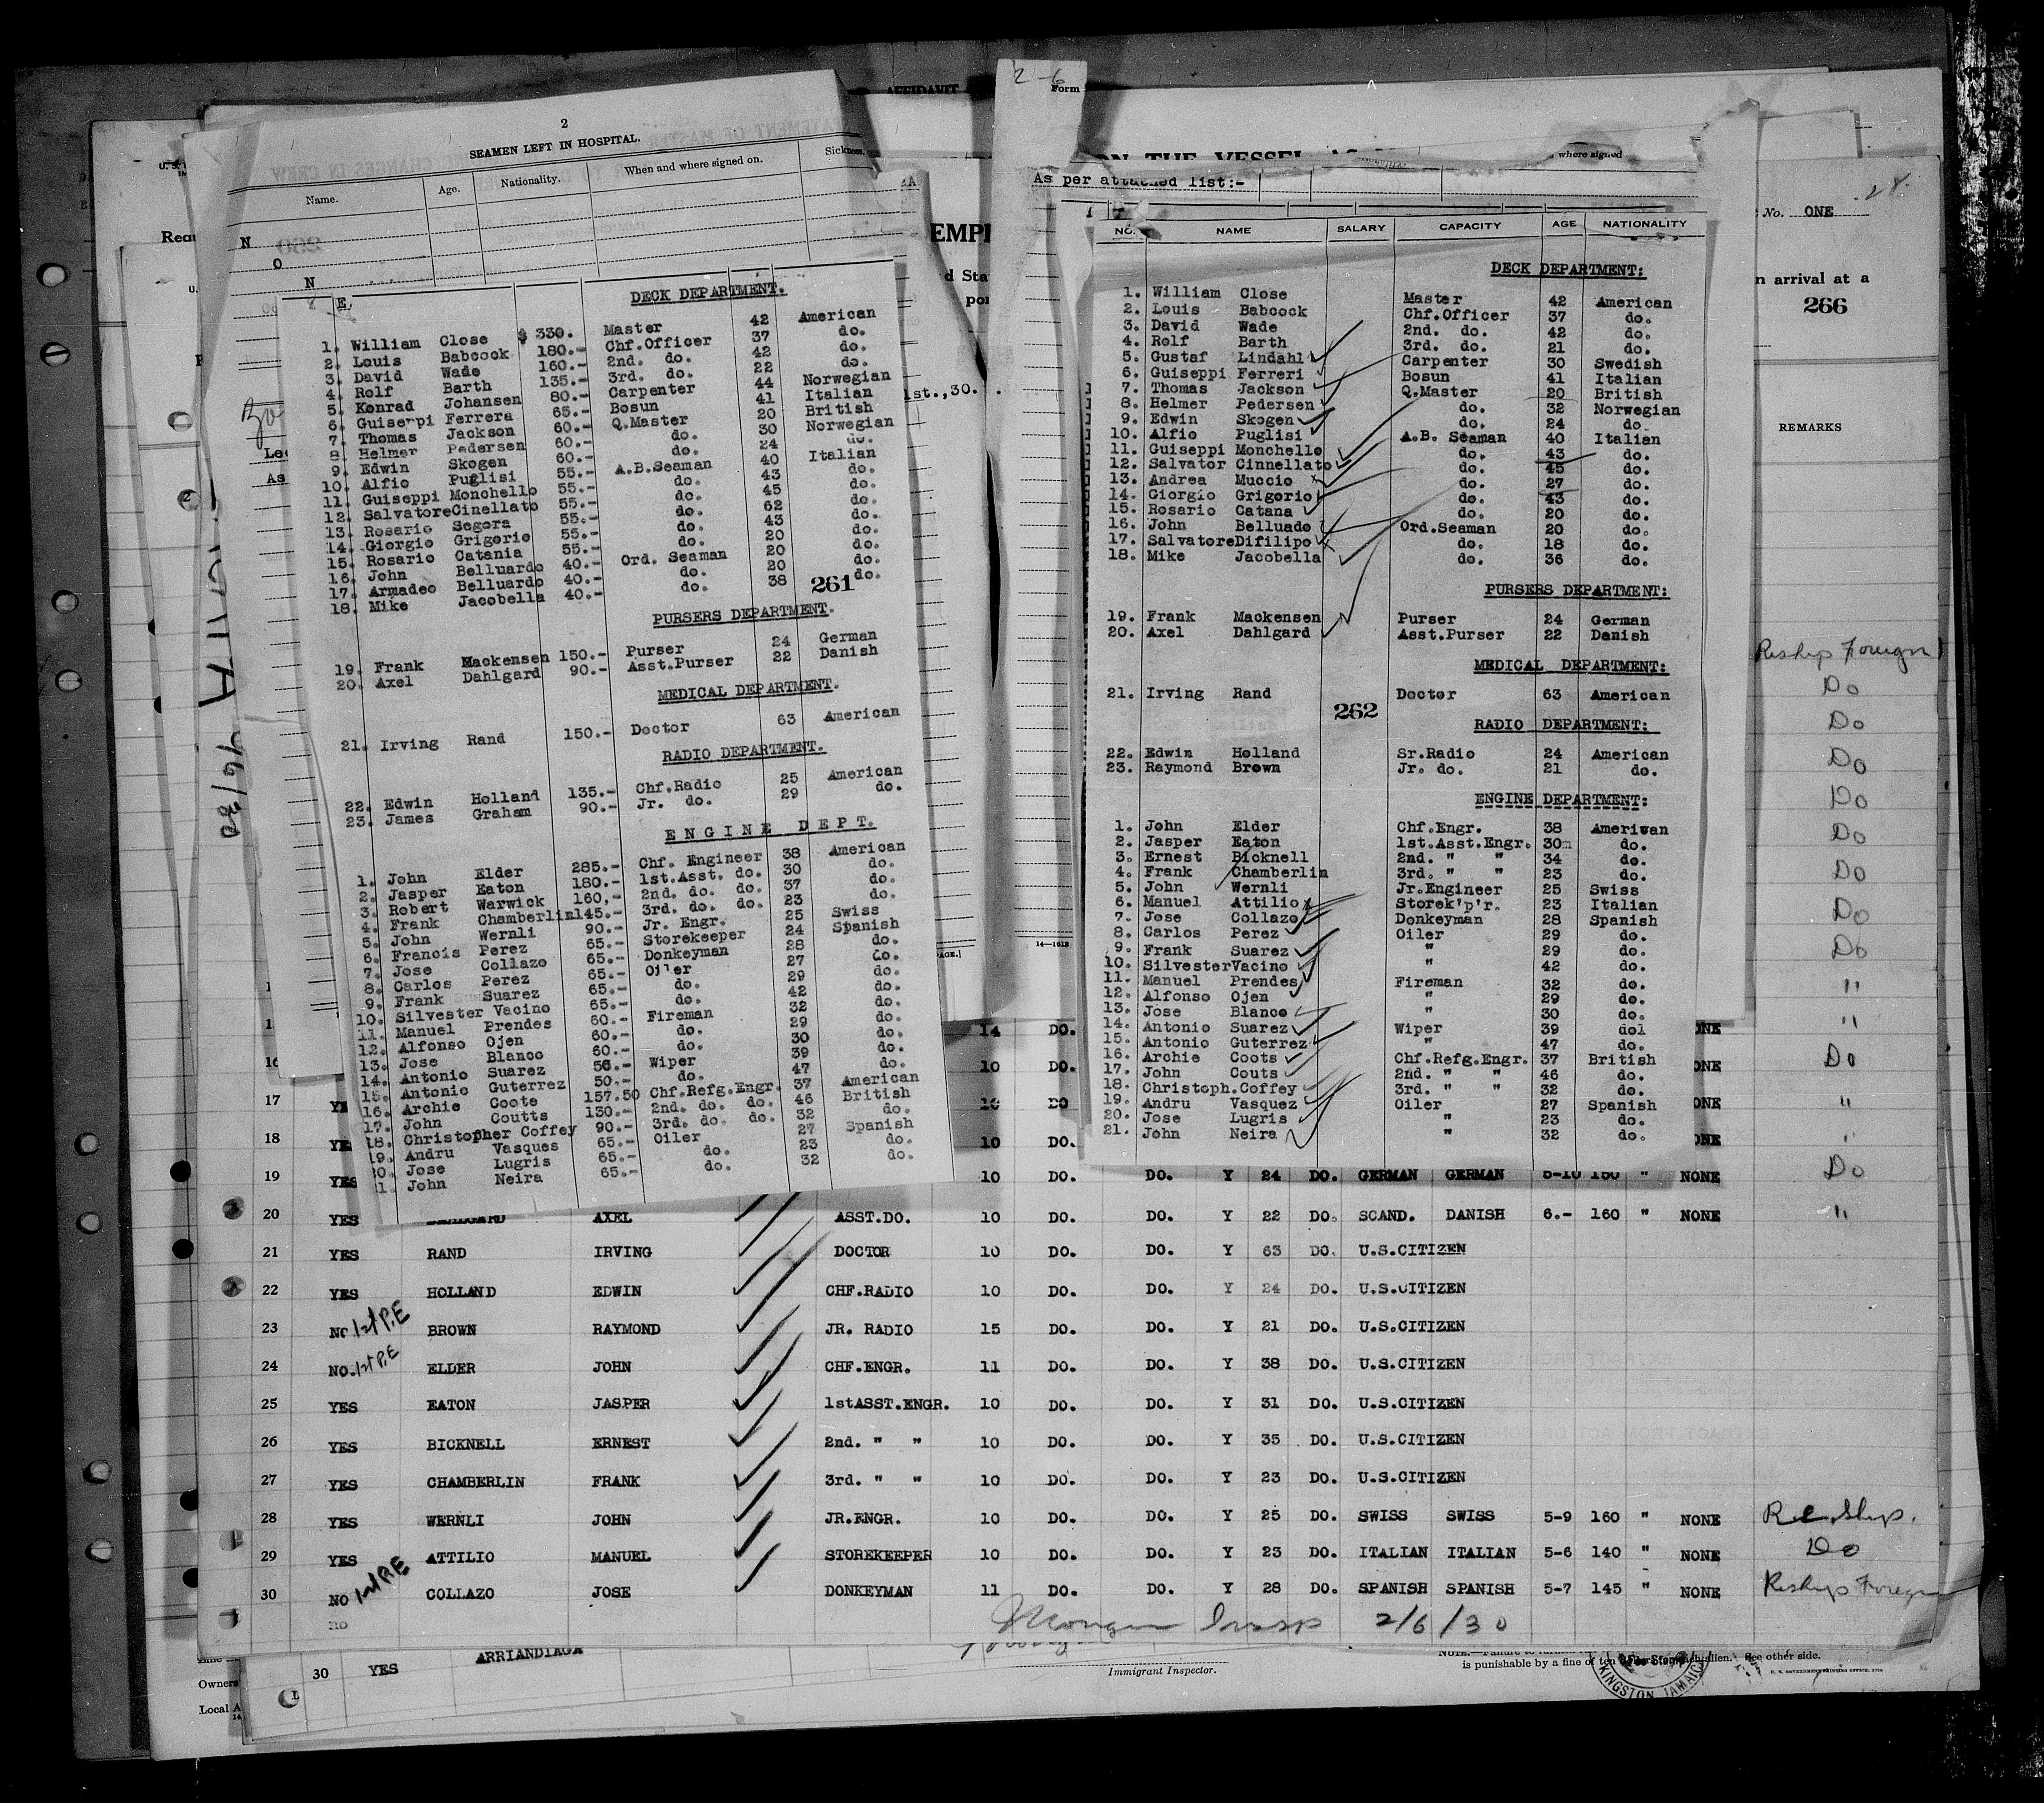 2
SEAMEN LEFT IN HOSPITAL.
Name. Age. Nationality. When and where signed on. Sickness.
N
O
N
E.
DECK DEPARTMENT.
1. William Close $ 330. Master 42 American
2. Louis Babcock 180.- Chf.Officer 37 do.
3. David Wade 160.- 2nd. do. 42 do.
4. Rolf Barth 135.- 3rd. do. 22 do.
5. Konrad Johansen 80.- Carpenter 44 Norwegian
6. Guiserpi Ferrera 65.- Bosun 41 Italian
7. Thomas Jackson 60.- Q.Master 20 British
8. Helmer Pedersen 60.- do. 30 Norwegian
9. Edwin Skogen 60.- do. 24 do.
10. Alfio Puglisi 55.- A.B.Seaman 40 Italian
11. Guiseppi Monchello 55.- do. 43 do.
12. SalvatoreCinellato 55.- do. 45 do.
13. Rosario Segora 55.- do. 62 do.
14. Giorgio Grigorio 55.- do. 43 do.
15. Rosario Catania 55.- do. 20 do.
16. John Belluardo 40.- Ord. Seaman 20 do.
17. Armadeo Belluardo 40.- do. 20 do.
18. Mike Jacobella 40.- do. 38 do.
261
PURSERS DEPARTMENT.
19. Frank Mackensen 150.- Purser 24 German
20. Axel Dahlgard 90.- Asst.Purser 22 Danish
MEDICAL DEPARTMENT.
21. Irving Rand 150.- Doctor 63 American
RADIO DEPARTMENT.
22. Edwin Holland 135.- Chf.Radio 25 American
23. James Graham 90.- Jr. do. 29 do.
ENGINE DEPT.
1. John Elder 285.- Chf. Engineer 38 American
2. Jasper Eaton 180.- 1st.Asst. do. 30 do.
3. Robert Warwick 160.- 2nd. do. do. 37 do.
4. Frank Chamberlin145.- 3rd. do. do. 23 do.
5. John Wernli 90.- Jr. Engr. 25 Swiss
6. Francis Perez 65.- Storekeeper 24 Spanish
7. Jose Collazo 65.- Donkeyman 28 do.
8. Carlos Perez 65.- Oiler 27 do.
9. Frank Suarez 65.- do. 29 do.
10. Silvester Vacino 65.- do. 42 do.
11. Manuel Prendes 60.- Fireman 32 do.
12. Alfonso Ojen 60.- do. 29 do.
13. Jose Blanco 60.- do. 30 do.
14. Antonio Suarez 50.- Wiper 39 do.
15. Antonio Guterrez 50.- do. 47 do.
16. Archie Coote 157.50 Chf.Refg.Engr. 37 American
17. John Coutts 130.- 2nd. do. do. 46 British
18. Christopher Coffey 90.- 3rd. do. do. 32 do.
19. Andru Vasques 65.- Oiler 27 Spanish
20. Jose Lugris 65.- do. 23 do.
21. John Neira 65.- do. 32 do.
2-6
AFFIDAVIT
Form
As per attached list:-
where signed
NO. NAME SALARY CAPACITY AGE NATIONALITY
DECK DEPARTMENT:
1. William Close Master 42 American
2. Louis Babcock Chf.Officer 37 do.
3. David Wade 2nd. do. 42 do.
4. Rolf Barth 3rd. do. 21 do.
5. Gustaf Lindahl Carpenter 30 Swedish
6. Guiseppi Ferreri Bosun 41 Italian
7. Thomas Jackson Q.Master 20 British
8. Helmer Pedersen do. 32 Norwegian
9. Edwin Skogen do. 24 do.
10. Alfio Puglisi A.B. Seaman 40 Italian
11. Guiseppi Monchello do. 43 do.
12. Salvator Cinnellato do. 45 do.
13. Andrea Muccio do. 27 do.
14. Giorgio Grigorio do. 43 do.
15. Rosario Catana do. 20 do.
16. John Belluado Ord.Seaman 20 do.
17. SalvatoreDifilipo do. 18 do.
18. Mike Jacobella do. 36 do.
PURSERS DEPARTMENT:
19. Frank Mackensen Purser 24 German
20. Axel Dahlgard Asst.Purser 22 Danish
MEDICAL DEPARTMENT:
21. Irving Rand Doctor 63 American
262
RADIO DEPARTMENT:
22. Edwin Holland Sr.Radio 24 American
23. Raymond Brown Jr. do. 21 do.
ENGINE DEPARTMENT:
1. John Elder Chf.Engr. 38 Ameriwan
2. Jasper Eaton 1st.Asst.Engr. 30 do.
3. Ernest Bicknell 2nd. " " 34 do.
4. Frank Chamberlin 3rd. " " 23 do.
5. John Wernli Jr.Engineer 25 Swiss
6. Manuel Attilio Storek'p'r. 23 Italian
7. Jose Collazo Donkeyman 28 Spanish
8. Carlos Perez Oiler 29 do.
9. Frank Suarez " 29 do.
10. SilvesterVacino " 42 do.
11. Manuel Prendes Fireman 32 do.
12. Alfonso Ojen " 29 do.
13. Jose Blanco " 30 do.
14. Antonio Suarez Wiper 39 dol
15. Antonio Guterrez " 47 do.
16. Archie Coots Chf.Refg.Engr. 37 British
17. John Couts 2nd. " " 46 do.
18. Christoph.Coffey 3rd. " " 32 do.
19. Andru Vasquez Oiler 27 Spanish
20. Jose Lugris " 23 do.
21. John Neira " 32 do.
No. ONE
n arrival at a
266
REMARKS
Reship Foreign
Do
Do
Do
Do
Do
Do
Do
Do
"
"
Do
"
"
Do
"
14 DO. ONE
16 10 DO. ONE
17 10 DO ONE
18 10 DO. ONE
19 YES 10 DO. DO. Y 24 DO. GERMAN GERMAN 5-10 150 " NONE
20 YES AXEL ASST.DO. 10 DO. DO. Y 22 DO. SCAND. DANISH 6.- 160 " NONE
21 YES RAND IRVING DOCTOR 10 DO. DO. Y 63 DO. U.S.CITIZEN
22 YES HOLLAND EDWIN CHF.RADIO 10 DO. DO. Y 24 DO. U.S.CITIZEN
23 NO 1st P.E BROWN RAYMOND JR. RADIO 15 DO. DO. Y 21 DO. U.S.CITIZEN
24 NO. 1st P.E ELDER JOHN CHF.ENGR. 11 DO. DO. Y 38 DO. U.S.CITIZEN
25 YES EATON JASPER 1stASST.ENGR. 10 DO. DO. Y 31 DO. U.S.CITIZEN
26 YES BICKNELL ERNEST 2nd. " " 10 DO. DO. Y 35 DO. U.S.CITIZEN
27 YES CHAMBERLIN FRANK 3rd. " " 10 DO. DO. Y 23 DO. U.S.CITIZEN
28 YES WERNLI JOHN JR.ENGR. 10 DO. DO. Y 25 DO. SWISS SWISS 5-9 160 " NONE Re Ship.
29 YES ATTILIO MANUEL STOREKEEPER 10 DO. DO. Y 23 DO. ITALIAN ITALIAN 5-6 140 " NONE Do
30 NO 1st P.E COLLAZO JOSE DONKEYMAN 11 DO. DO. Y 28 DO. SPANISH SPANISH 5-7 145 " NONE Reship Foreign
2/6/30
30 YES ARRIANDIAGA
Immigrant Inspector.
is punishable by a fine of ten
alien. See other side.
Owners
Local A
KINGSTON JAMAICA